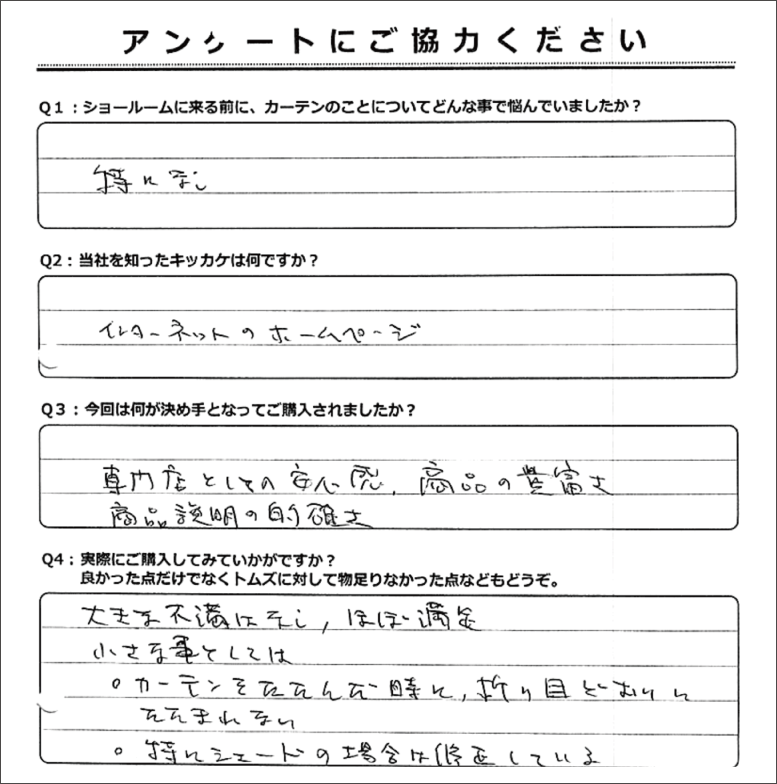 アンケートにご協力ください
Q1：ショールームに来る前に、カーテンのことについてどんな事で悩んでいましたか？
特になし
Q2：当社を知ったキッカケは何ですか？
インターネットのホームページ
Q3：今回は何が決め手となってご購入されましたか？
専門店としての安心感，商品の豊富さ
商品説明の的確さ
Q4：実際にご購入してみていかがですか？
良かった点だけでなくトムズに対して物足りなかった点などもどうぞ。
大きな不満はなし，ほぼ満足
小さな事としては
○カーテンをたたんだ時に，折り目どおりに
たたまれない
○特にシェードの場合は修正している